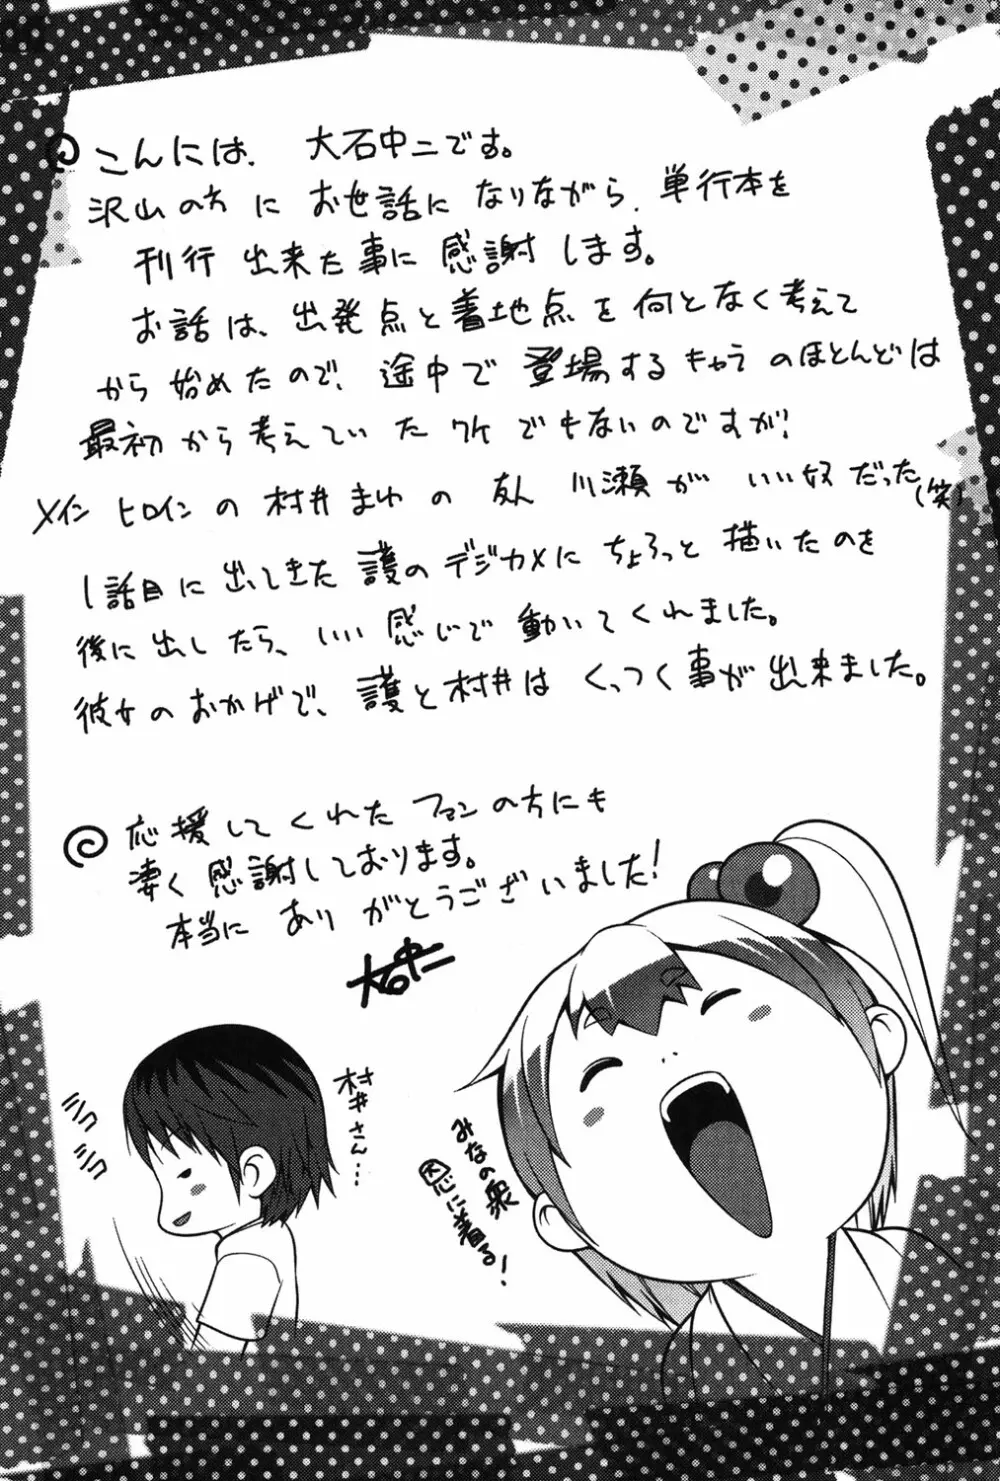 こんには、大石中二です。
沢山の方にお世話になりながら、単行本を
刊行出来た事に感謝します。
お話は、出発点と着地点を何となく考えて
から始めたので、途中で登場するキャラのほとんどは
最初から考えていたワケでもないのですが!
メインヒロインの村井まゆの友人川瀬がいい奴だった(笑)
1話目に出てきた護のデジカメにちょろっと描いたのを
後に出したら、いい感じで動いてくれました。
彼女のおかげで、護と村井はくっつく事が出来ました。
応援してくれたファンの方にも
凄く感謝しております。
本当にありがとうございました!
大石中二
村井さん…
ミコ
ミコ
みなの衆
恩に着る!